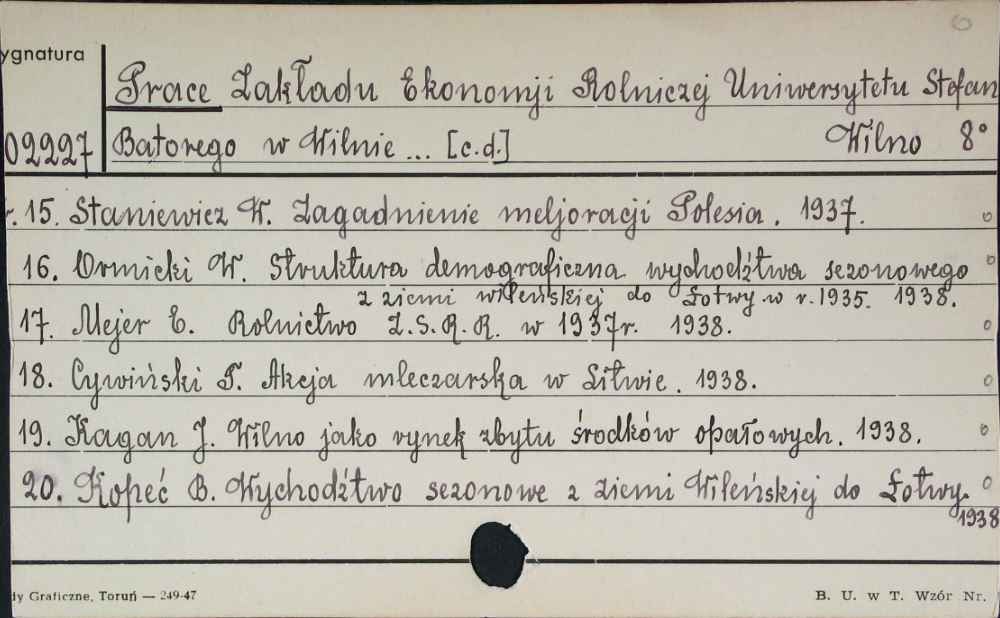 ygnatura
Prace Zakładu Ekonomji Rolniczej Uniwersytetu Stefan
02227 Batorego w Wilnie ... [c.d.] Wilno 8°
r. 15. Staniewicz W. Zagadnienie meljoracji Polesia. 1937.
16. Ormicki W. Struktura demograficzna wychodźtwa sezonowego
z ziemi wileńskiej do Łotwy w r. 1935. 1938.
17. Mejer E. Rolnictwo Z.S.R.R. w 1937r. 1938.
18. Cywiński T. Akcja mleczarska w Litwie. 1938.
19. Kagan J. Wilno jako rynek zbytu środków opałowych. 1938.
20. Kopeć B. Wychodźtwo sezonowe z ziemi Wileńskiej do Łotwy.
1938
dy Graficzne, Toruń — 249-47 B. U. w T. Wzór Nr.